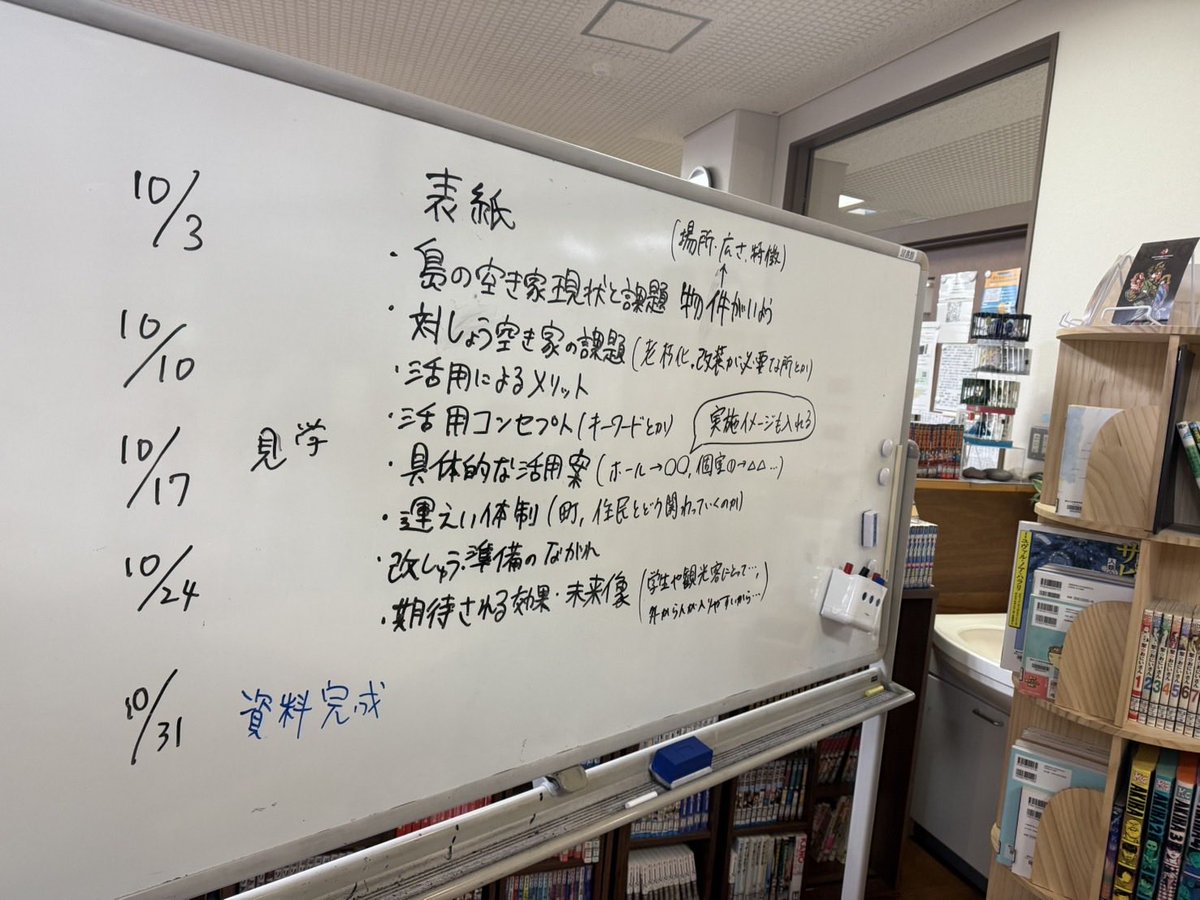 10/3
10/10
10/17 見学
10/24
10/31 資料完成
表紙
(場所・広さ・特徴)
・島の空き家現状と課題 物件がいよう
・対しょう空き家の課題(老朽化。改築が必要な所とか)
・活用によるメリット
・活用コンセプト(キーワードとか)
実施イメージも入れる
・具体的な活用案(ホール→○○, 個室①→△△…)
・運えい体制(町, 住民とどう関わっていくのか)
・改しゅう・準備のながれ
・期待される効果・未来像(学生や観光客にとって…,
外から人が入りやすいから…)
AKIRA
AKIRA 2
AKIRA 3